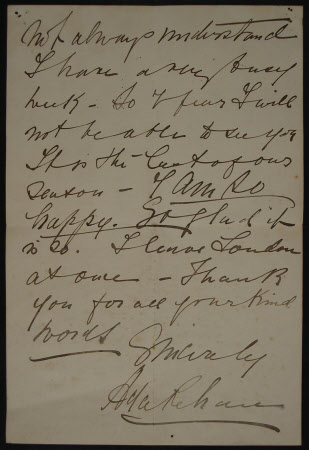 Not always understand
I have a very busy
week - So I fear I will
not be able to see you
It is the last of our
season - I am so
happy. So glad it
is so. I leave London
at once - Thank
you for all your kind
words
Sincerely
Ada Rehan